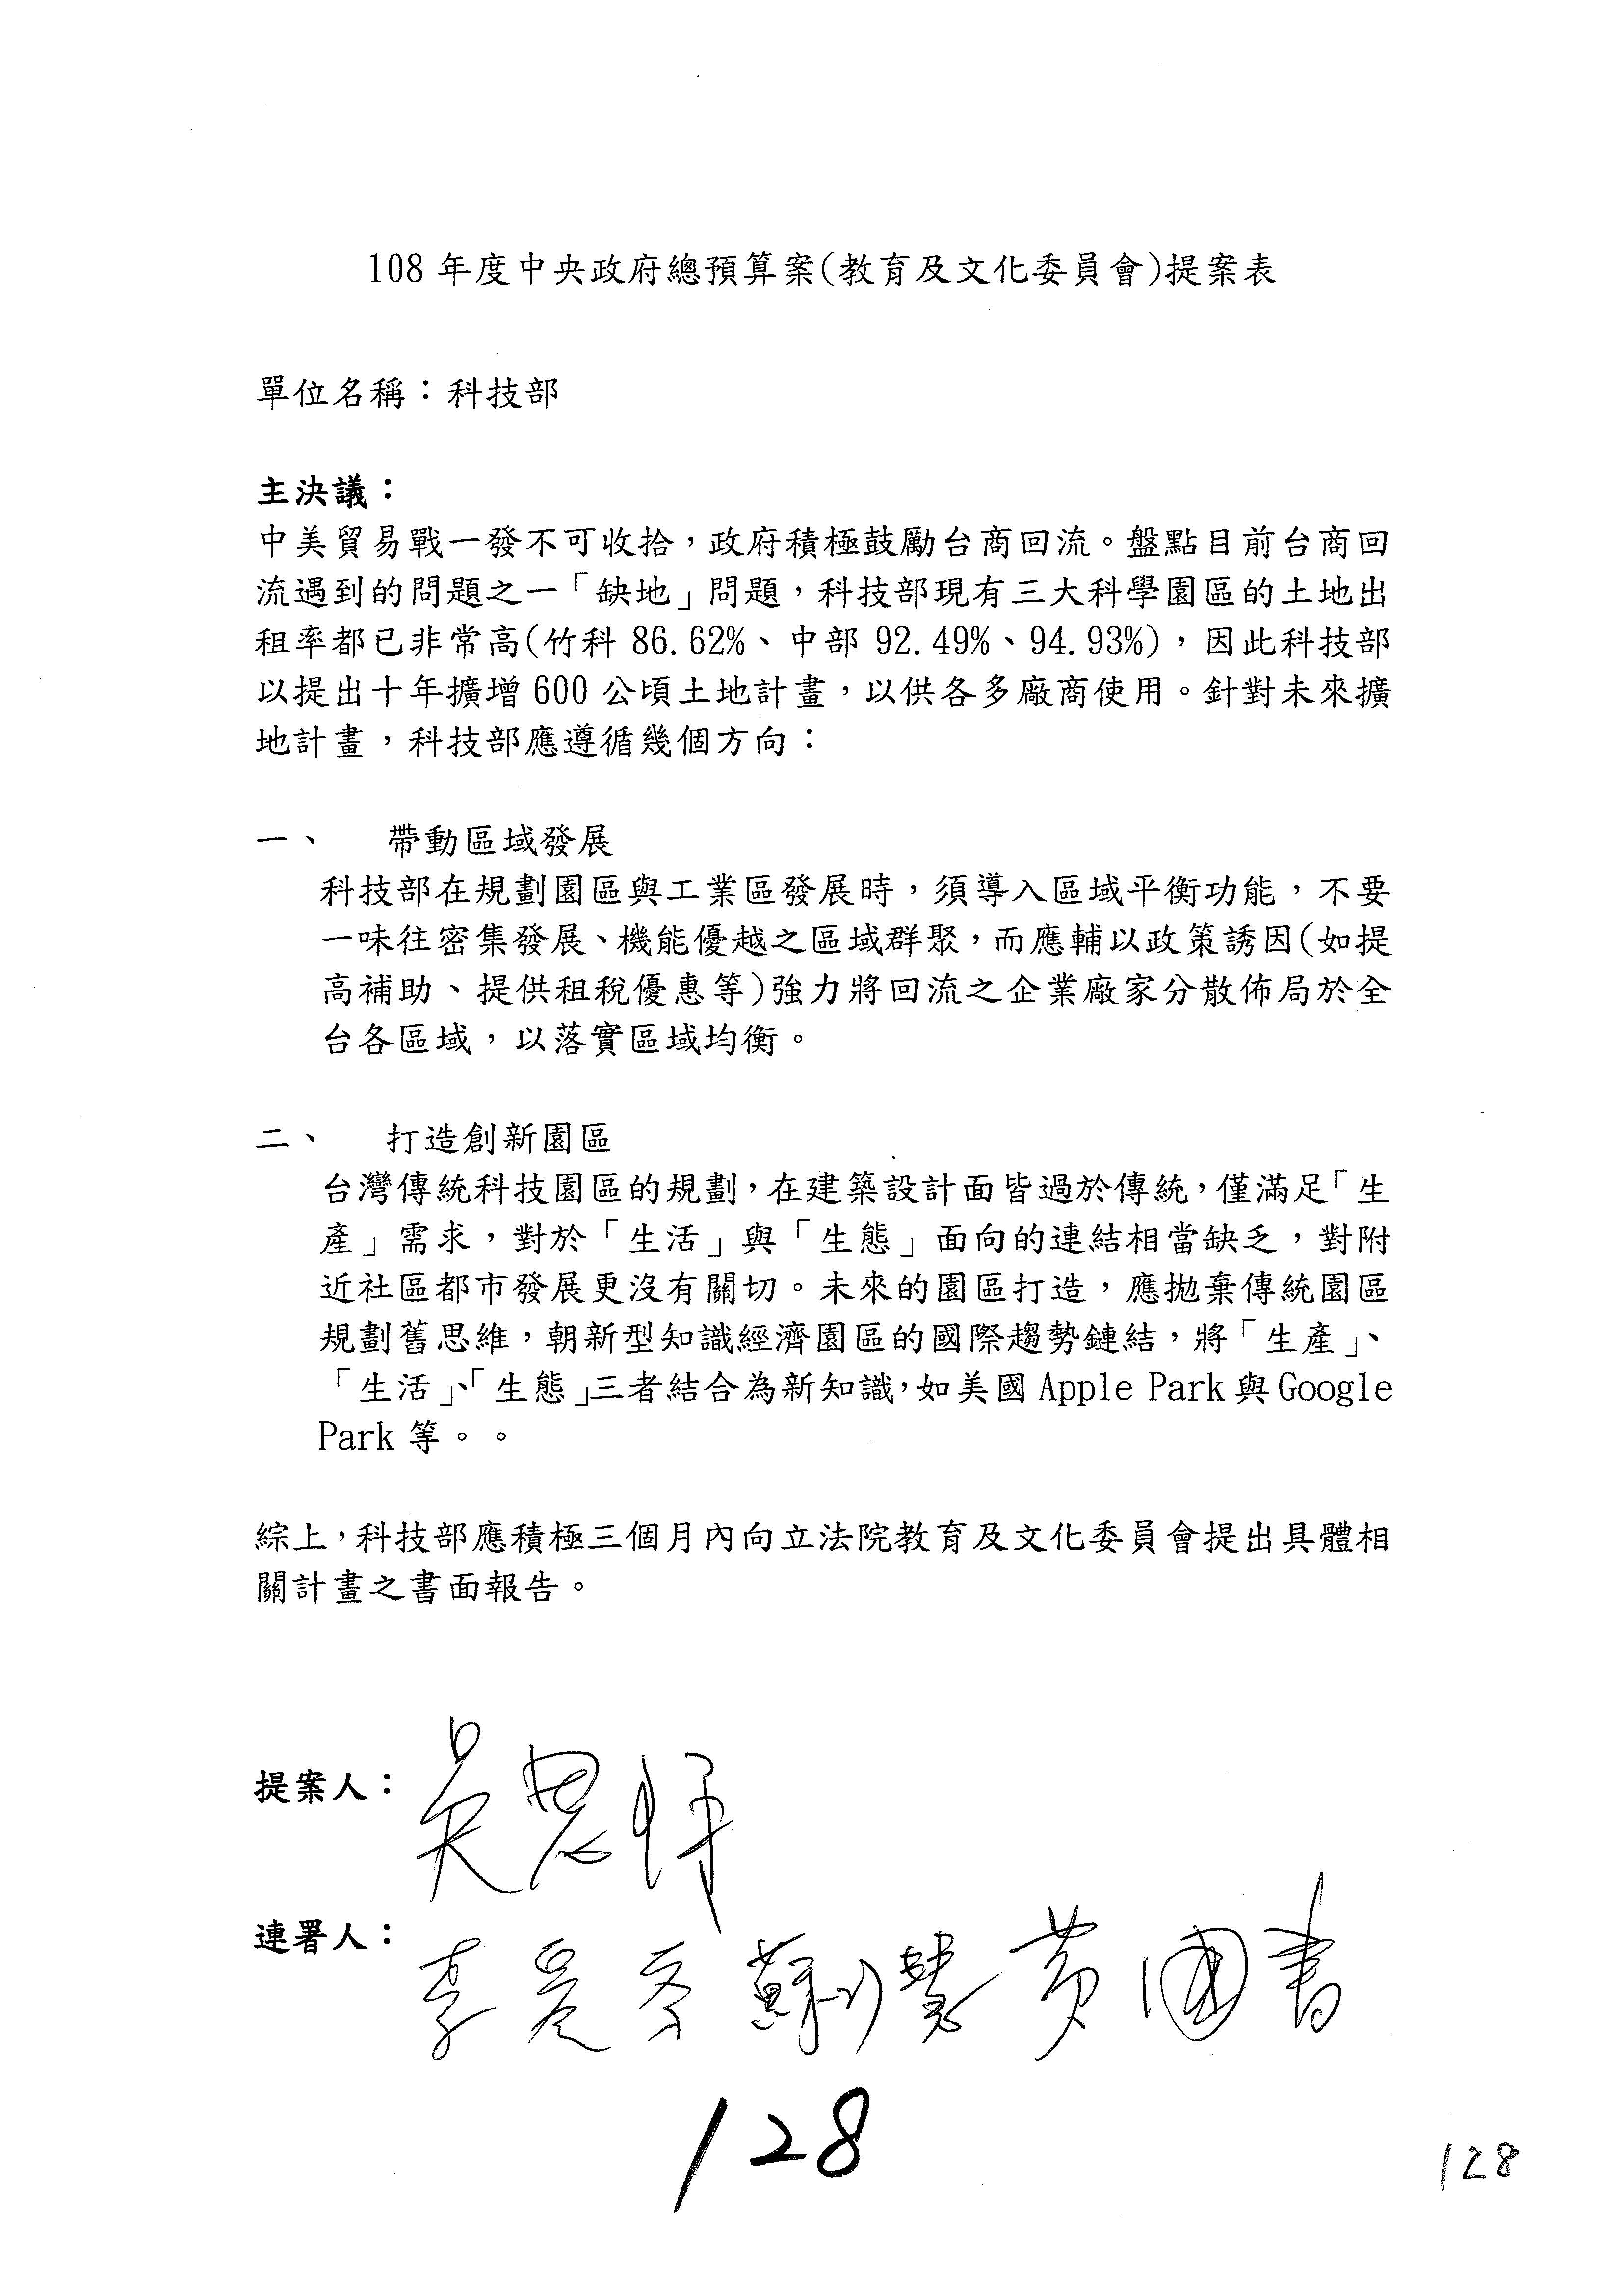 108 年度中央政府總預算案(教育及文化委員會)提案表
單位名稱：科技部
主決議：
中美貿易戰一發不可收拾，政府積極鼓勵台商回流。盤點目前台商回
流遇到的問題之一「缺地」問題，科技部現有三大科學園區的土地出
租率都已非常高(竹科 86.62%、中部 92.49%、94.93%)，因此科技部
以提出十年擴增 600 公頃土地計畫，以供各多廠商使用。針對未來擴
地計畫，科技部應遵循幾個方向：
一、 帶動區域發展
科技部在規劃園區與工業區發展時，須導入區域平衡功能，不要
一味往密集發展、機能優越之區域群聚，而應輔以政策誘因(如提
高補助、提供租稅優惠等)強力將回流之企業廠家分散佈局於全
台各區域，以落實區域均衡。
二、 打造創新園區
台灣傳統科技園區的規劃，在建築設計面皆過於傳統，僅滿足「生
產」需求，對於「生活」與「生態」面向的連結相當缺乏，對附
近社區都市發展更沒有關切。未來的園區打造，應拋棄傳統園區
規劃舊思維，朝新型知識經濟園區的國際趨勢鏈結，將「生產」、
「生活」、「生態」三者結合為新知識，如美國 Apple Park 與 Google
Park 等。。
綜上，科技部應積極三個月內向立法院教育及文化委員會提出具體相
關計畫之書面報告。
提案人：吳思瑤
連署人：李 蘇巧慧 黃國書
128
128